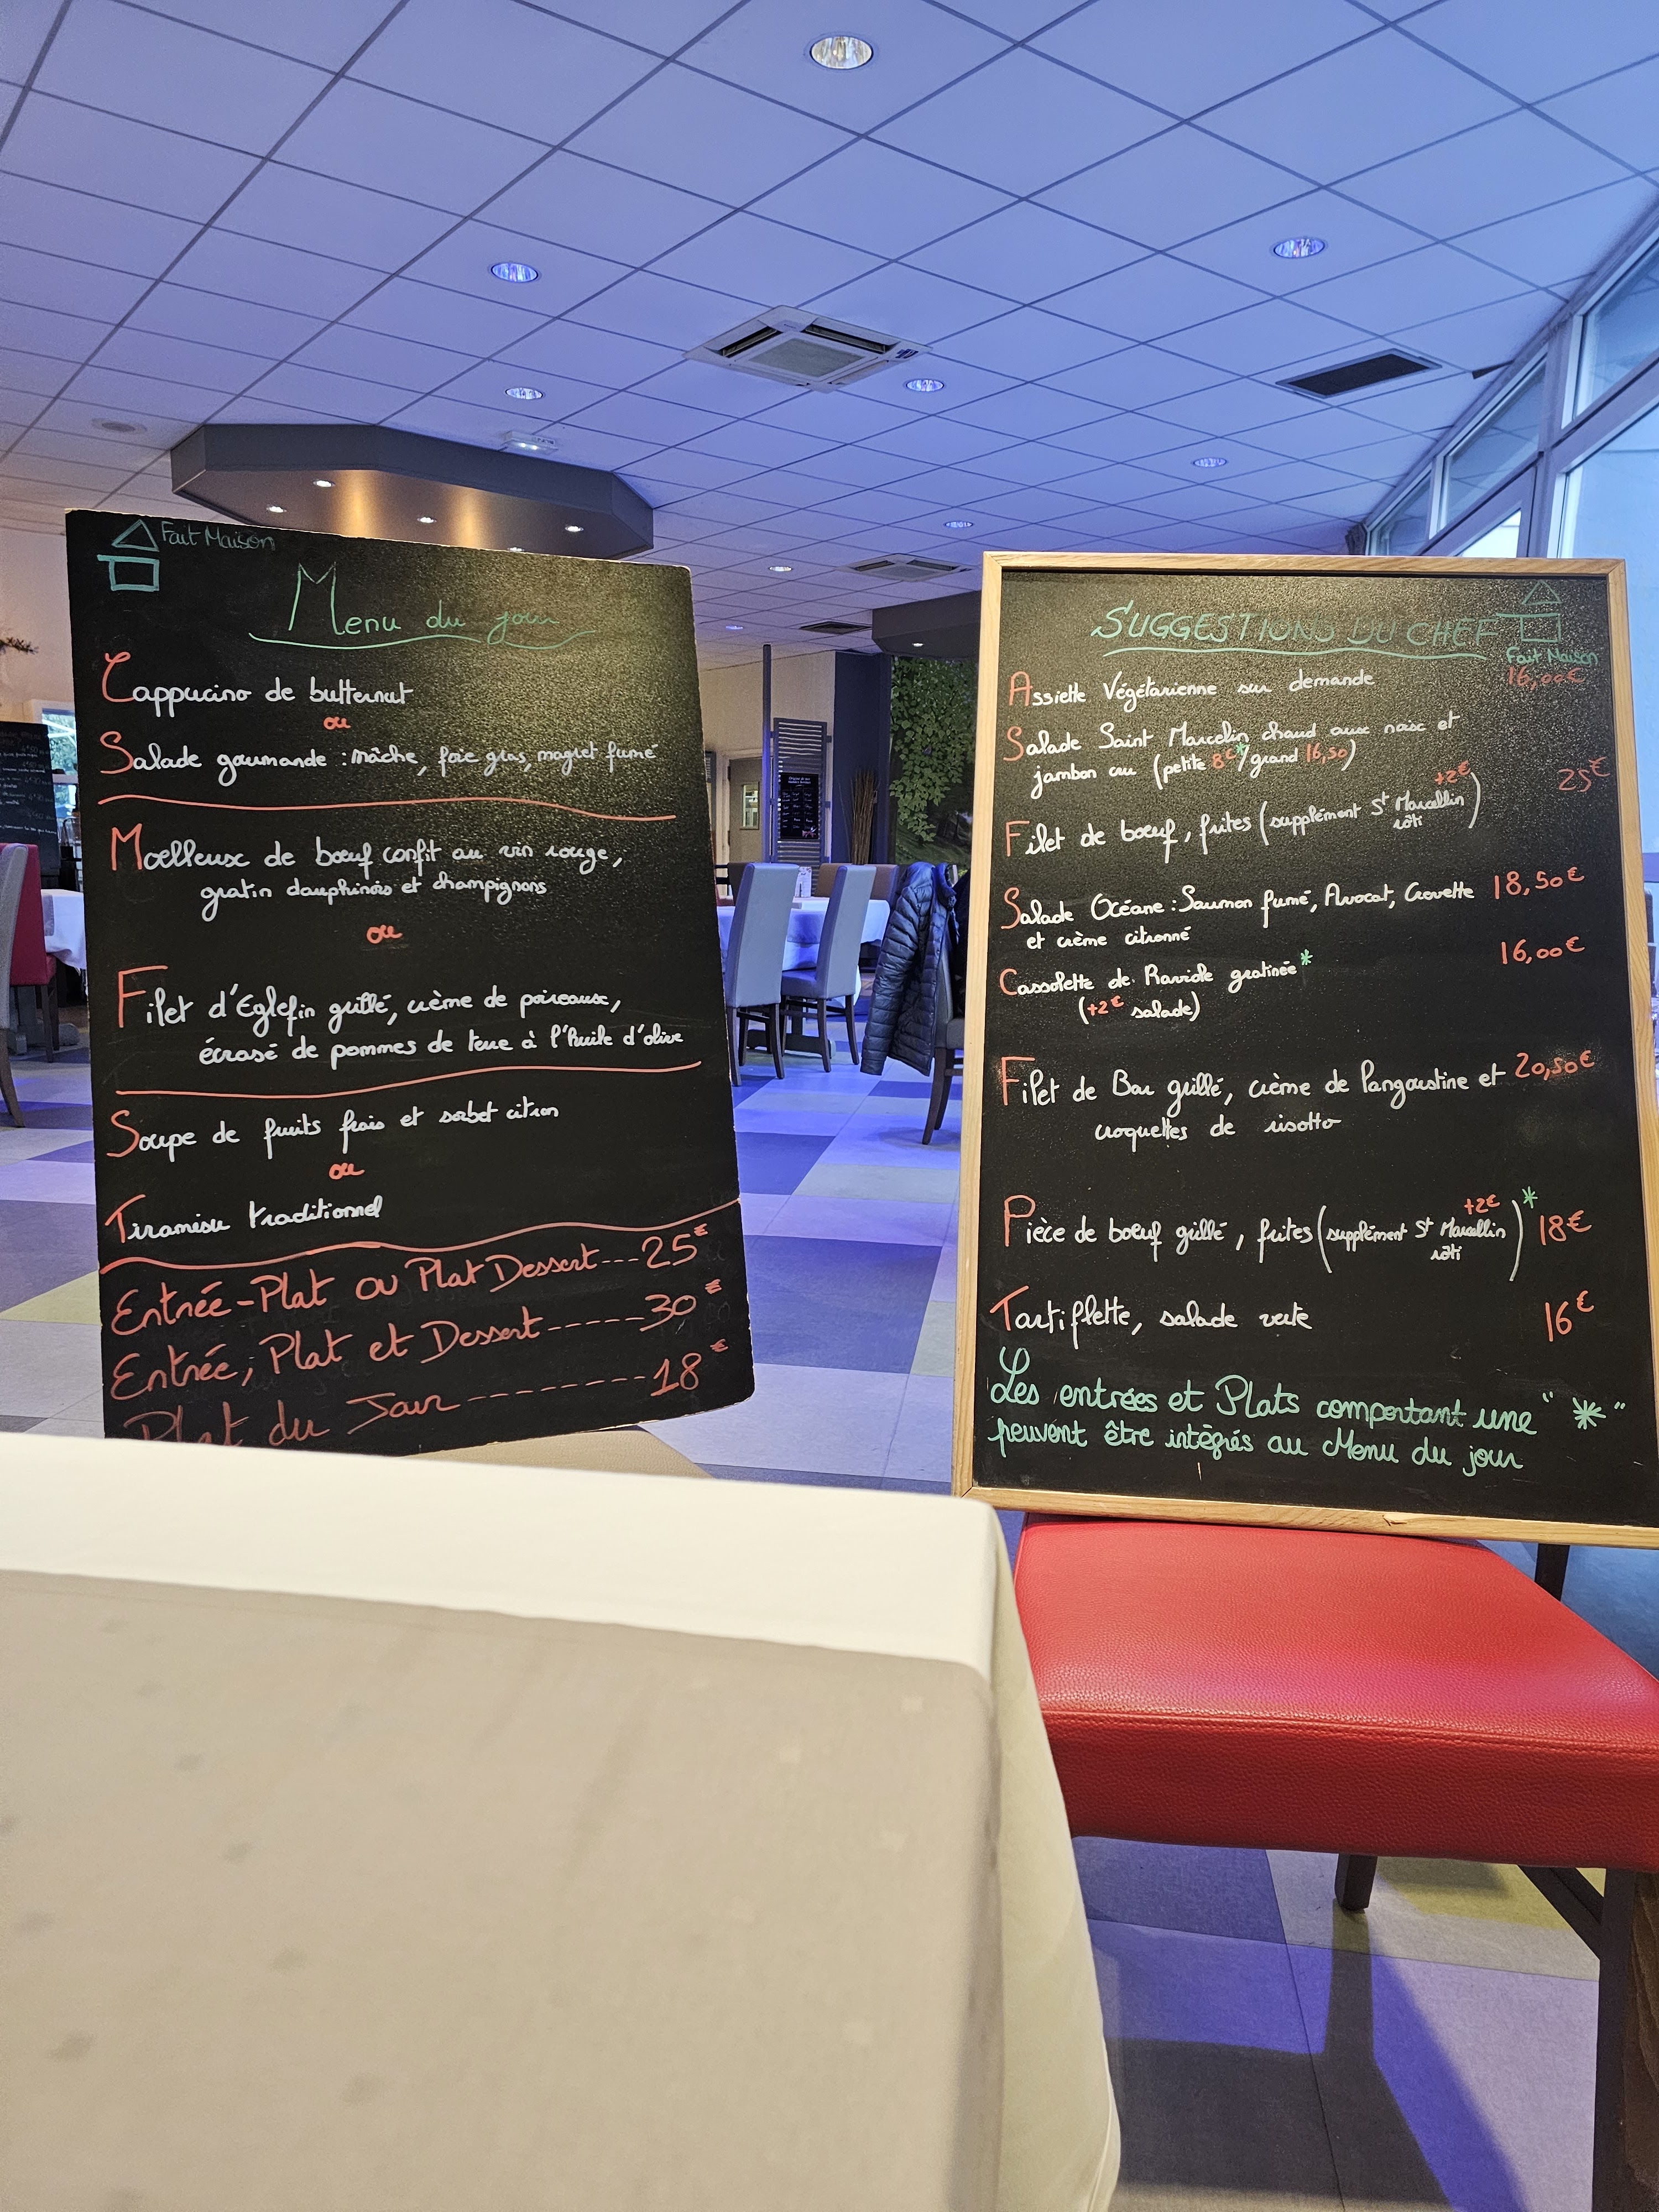 Fait Maison
Menu du jour
Cappucino de butternut
ou
Salade gourmande : mâche, foie gras, magret fumé
Moelleuse de bœuf confit au vin rouge,
gratin dauphinois et champignons
ou
Filet d'Eglefin grillé, crème de poireaux,
écrasé de pommes de terre à l'huile d'olive
Soupe de fruits frais et sorbet citron
ou
Tiramisu traditionnel
Entrée-Plat ou Plat Dessert---25€
Entrée, Plat et Dessert-----30€
Plat du Jour --------18€
SUGGESTIONS DU CHEF
Fait Maison
Assiette Végétarienne sur demande 16,00€
Salade Saint Marcelin chaud aux noix et
jambon cru (petite 8€*/grand 16,50)
Filet de bœuf, frites (supplément St Marcellin rôti +2€) 25€
Salade Océane : Saumon fumé, Avocat, Crevette 18,50€
et crème citronné
Cassolette de Raviole gratinée* 16,00€
(+2€ salade)
Filet de Bar grillé, crème de langoustine et 20,50€
croquettes de risotto
Pièce de bœuf grillé, frites (supplément St Marcellin rôti +2€)* 18€
Tartiflette, salade verte 16€
Les entrées et Plats comportant une "*"
peuvent être intégrés au Menu du jour